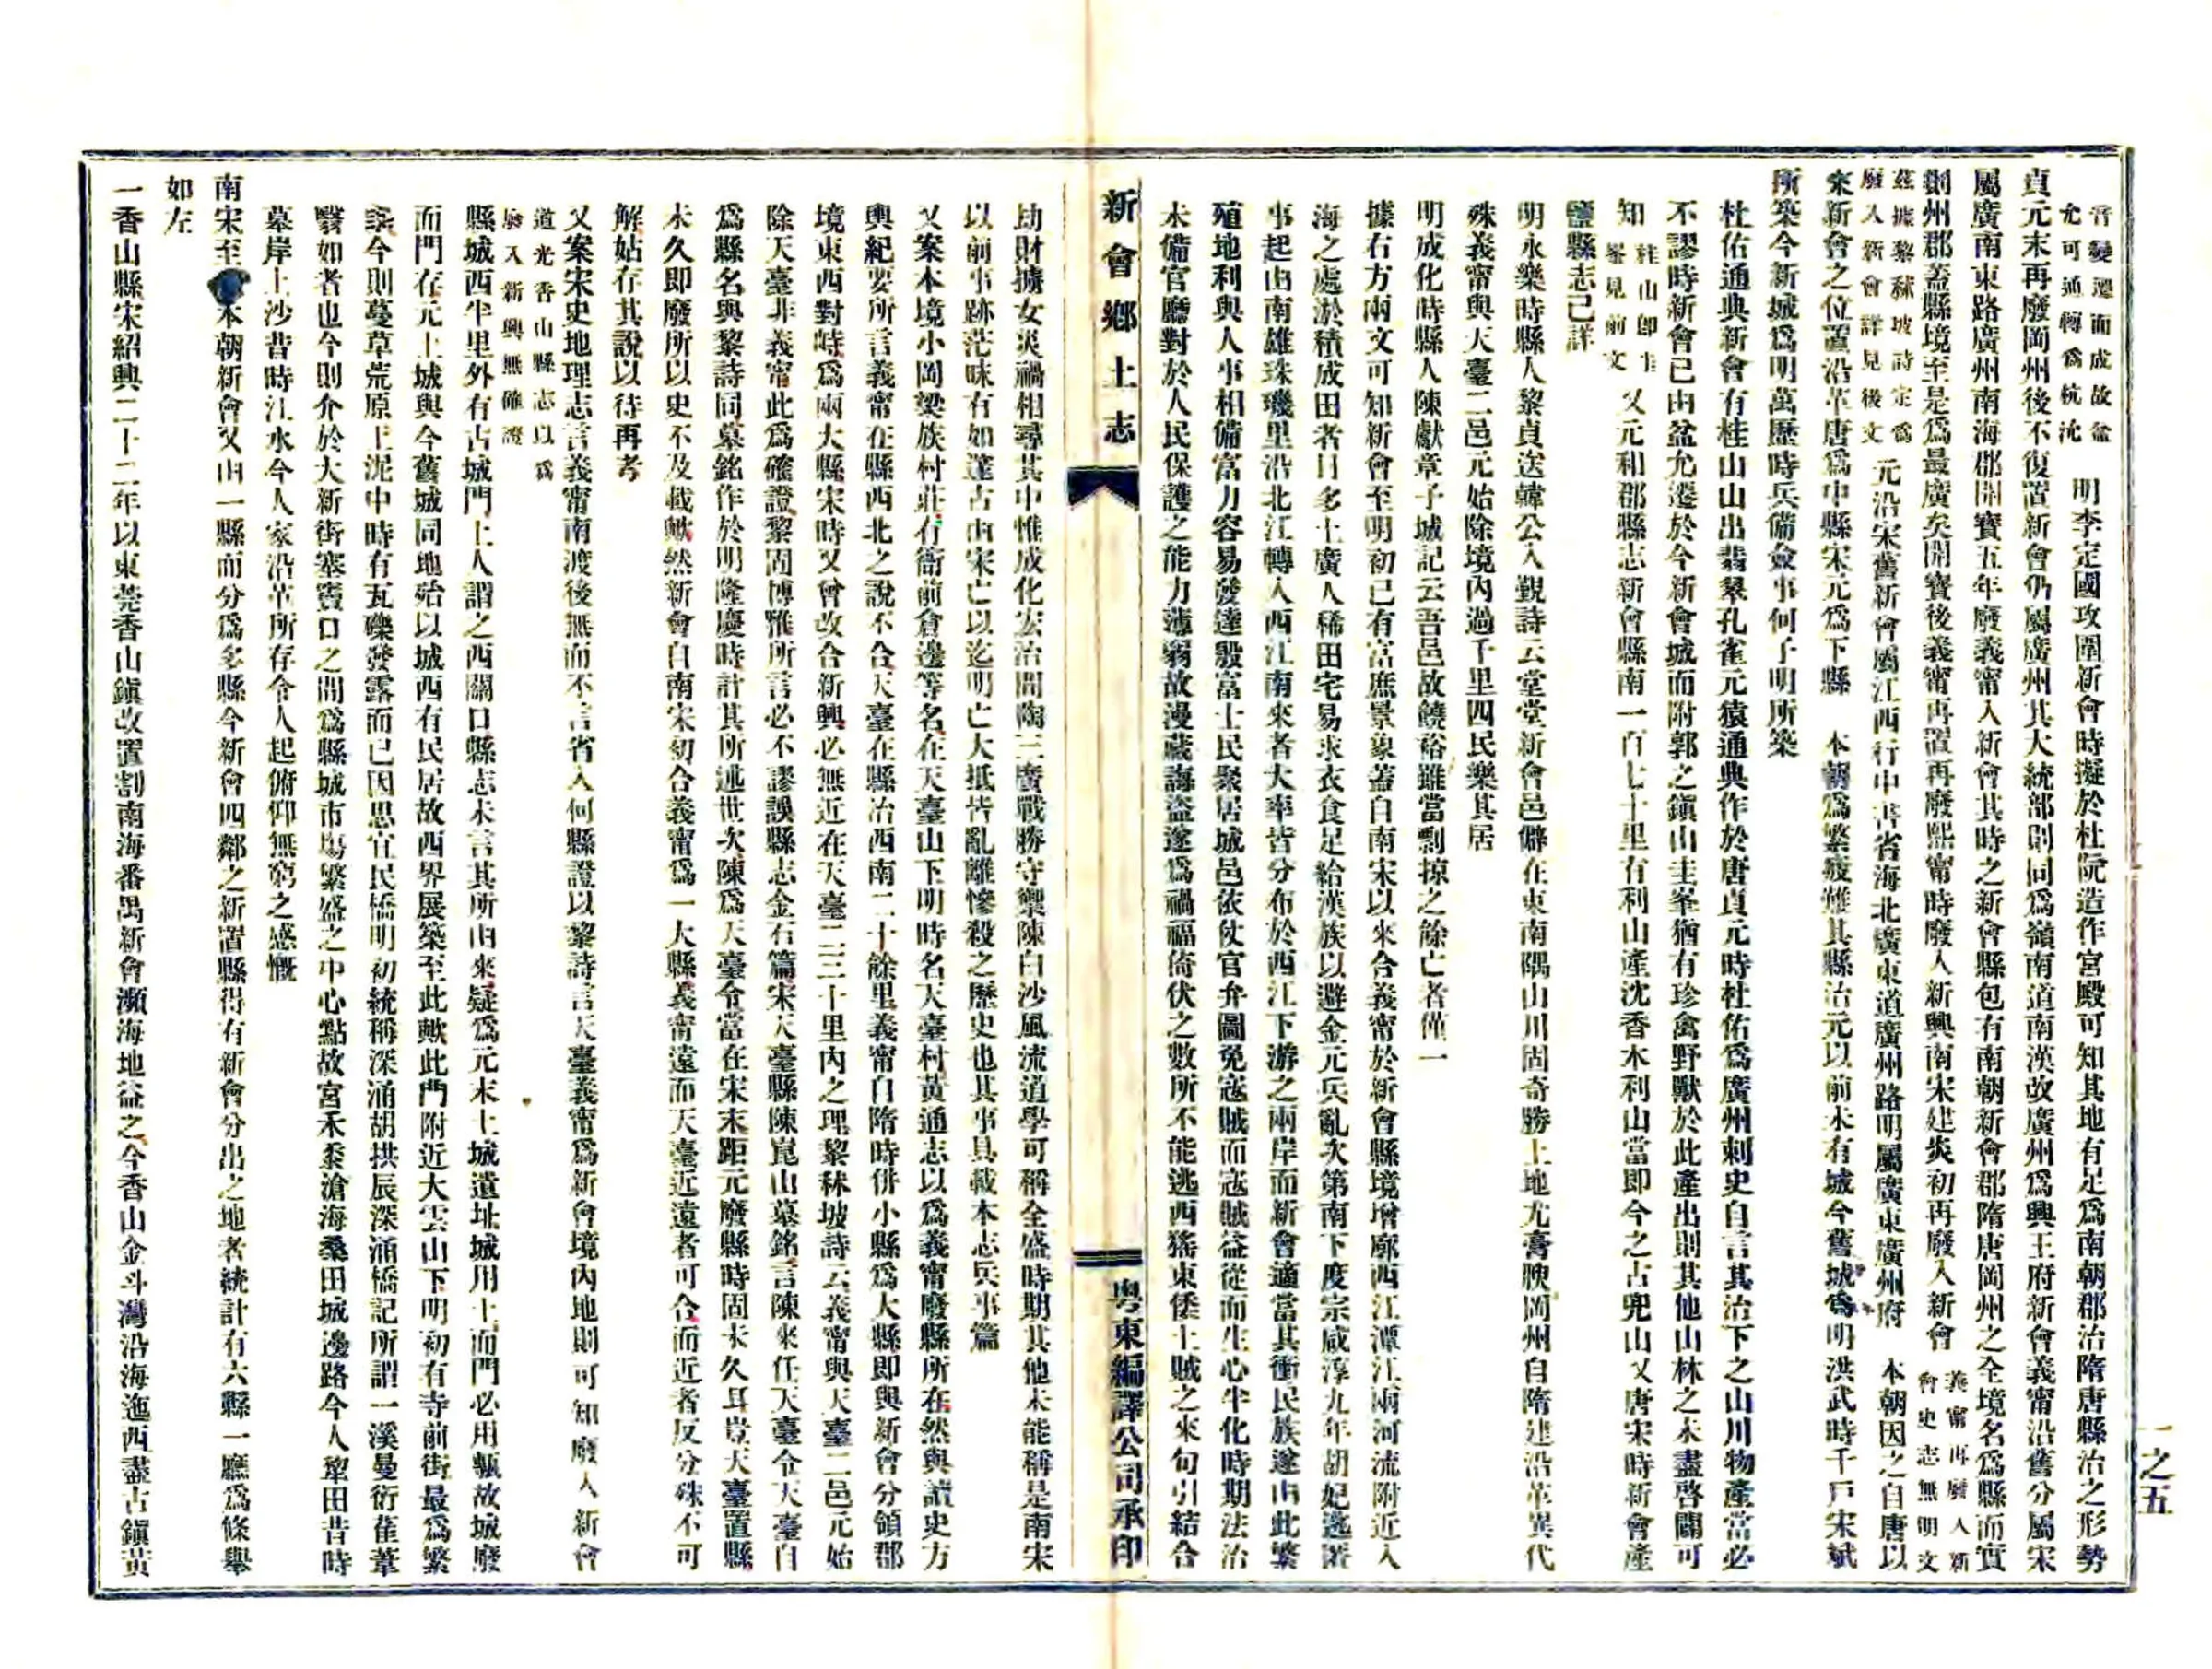 音變遷而成故盆
允可通轉爲杭沈
明李定國攻圍新會時擬於杜阮造作宮殿可知其地有足爲南朝郡治隋唐縣治之形勢
貞元末再廢岡州後不復置新會仍屬廣州其大統部則同爲嶺南道南漢改廣州爲興王府新會義甯沿舊分屬宋
屬廣南東路廣州南海郡開寶五年廢義甯入新會其時之新會縣包有南朝新會郡隋唐岡州之全境名爲縣而實
割州郡蓋縣境至是爲最廣矣開寶後義甯再置再廢熙甯時廢入新興南宋建炎初再廢入新會
義甯再廢入新
會史志無明文
茲據黎秫坡詩定爲
廢入新會詳見後文
元沿宋舊新會屬江西行中書省海北廣東道廣州路明屬廣東廣州府 本朝因之自唐以
來新會之位置沿革唐爲中縣宋元爲下縣 本朝爲繁疲難其縣治元以前未有城今舊城爲明洪武時千戶宋斌
所築今新城爲明萬歷時兵備僉事何子明所築
杜佑通典新會有桂山山出翡翠孔雀元猿通典作於唐貞元時杜佑爲廣州刺史自言其治下之山川物產當必
不謬時新會已由盆允遷於今新會城而附郭之鎭山圭峯猶有珍禽野獸於此產出則其他山林之未盡啓闢可
知
桂山卽圭
峯見前文
又元和郡縣志新會縣南一百七十里有利山產沈香木利山當即今之古兜山又唐宋時新會產
鹽縣志已詳
明永樂時縣人黎貞送韓公入覲詩云堂堂新會邑僻在東南隅山川固奇勝土地尤膏腴岡州自隋建沿革異代
殊義甯與天臺二邑元始除境內過千里四民樂其居
明成化時縣人陳獻章子城記云吾邑故饒裕雖當剽掠之餘亡者僅一
據右方兩文可知新會至明初已有富庶景象蓋自南宋以來合義甯於新會縣境增廓西江潭江兩河流附近入
海之處淤積成田者日多土廣人稀田宅易求衣食足給漢族以避金元兵亂次第南下度宗咸淳九年胡妃逃匿
事起由南雄珠璣里沿北江轉入西江南來者大率皆分布於西江下游之兩岸而新會適當其衝民族遂由此繁
殖地利與人事相備富力容易發達殷富士民聚居城邑依仗官弁圖免寇賊而寇賊益從而生心半化時期法治
未備官廳對於人民保護之能力薄弱故漫藏誨盜遂爲禍福倚伏之數所不能逃西猺東倭土賊之來句引結合
新會鄉土志
粵東編譯公司承印
劫財擄女災禍相尋其中惟成化宏治間陶三廣戰勝守禦陳白沙風流道學可稱全盛時期其他未能稱是南宋
以前事跡茫昧有如邃古由宋亡以迄明亡大抵皆亂離慘殺之歷史也其事具載本志兵事篇
又案本境小岡梁族村莊有衙前倉邊等名在天臺山下明時名天臺村黃通志以爲義甯廢縣所在然與讀史方
輿紀要所言義甯在縣西北之說不合天臺在縣治西南二十餘里義甯自隋時併小縣爲大縣即與新會分領郡
境東西對峙爲兩大縣宋時又曾改合新興必無近在天臺二三十里內之理黎秫坡詩云義甯與天臺二邑元始
除天臺非義甯此爲確證黎固博雅所言必不謬誤縣志金石篇宋天臺縣陳崑山墓銘言陳來任天臺令天臺自
爲縣名與黎詩同墓銘作於明隆慶時計其所述世次陳爲天臺令當在宋末距元廢縣時固未久耳豈天臺置縣
未久即廢所以史不及載歟然新會自南宋初合義甯爲一大縣義甯遠而天臺近遠者可合而近者反分殊不可
解姑存其說以待再考
又案宋史地理志言義甯南渡後無而不言省入何縣證以黎詩言天臺義甯爲新會境內地則可知廢入新會
道光香山縣志以爲
廢入新興無確證
縣城西半里外有古城門土人謂之西關口縣志未言其所由來疑爲元末土城遺址城用土而門必用甎故城廢
而門存元土城與今舊城同地殆以城西有民居故西界展築至此歟此門附近大雲山下明初有寺前街最爲繁
今則蔓草荒原土泥中時有瓦礫發露而已因思宜民橋明初統稱深涌胡拱辰深涌橋記所謂一溪曼衍萑葦
翳如者也今則介於大新街塞竇口之間爲縣城市場繁盛之中心點故宮禾黍滄海桑田城邊路今人犂田昔時
墓岸上沙昔時江水今人家沿革所存令人起俯仰無窮之感慨
南宋至本朝新會又由一縣而分爲多縣今新會四鄰之新置縣得有新會分出之地者統計有六縣一廳爲條舉
如左
一香山縣宋紹興二十二年以東莞香山鎭改置割南海番禺新會瀕海地益之今香山金斗灣沿海迤西盡古鎭黃
一之五